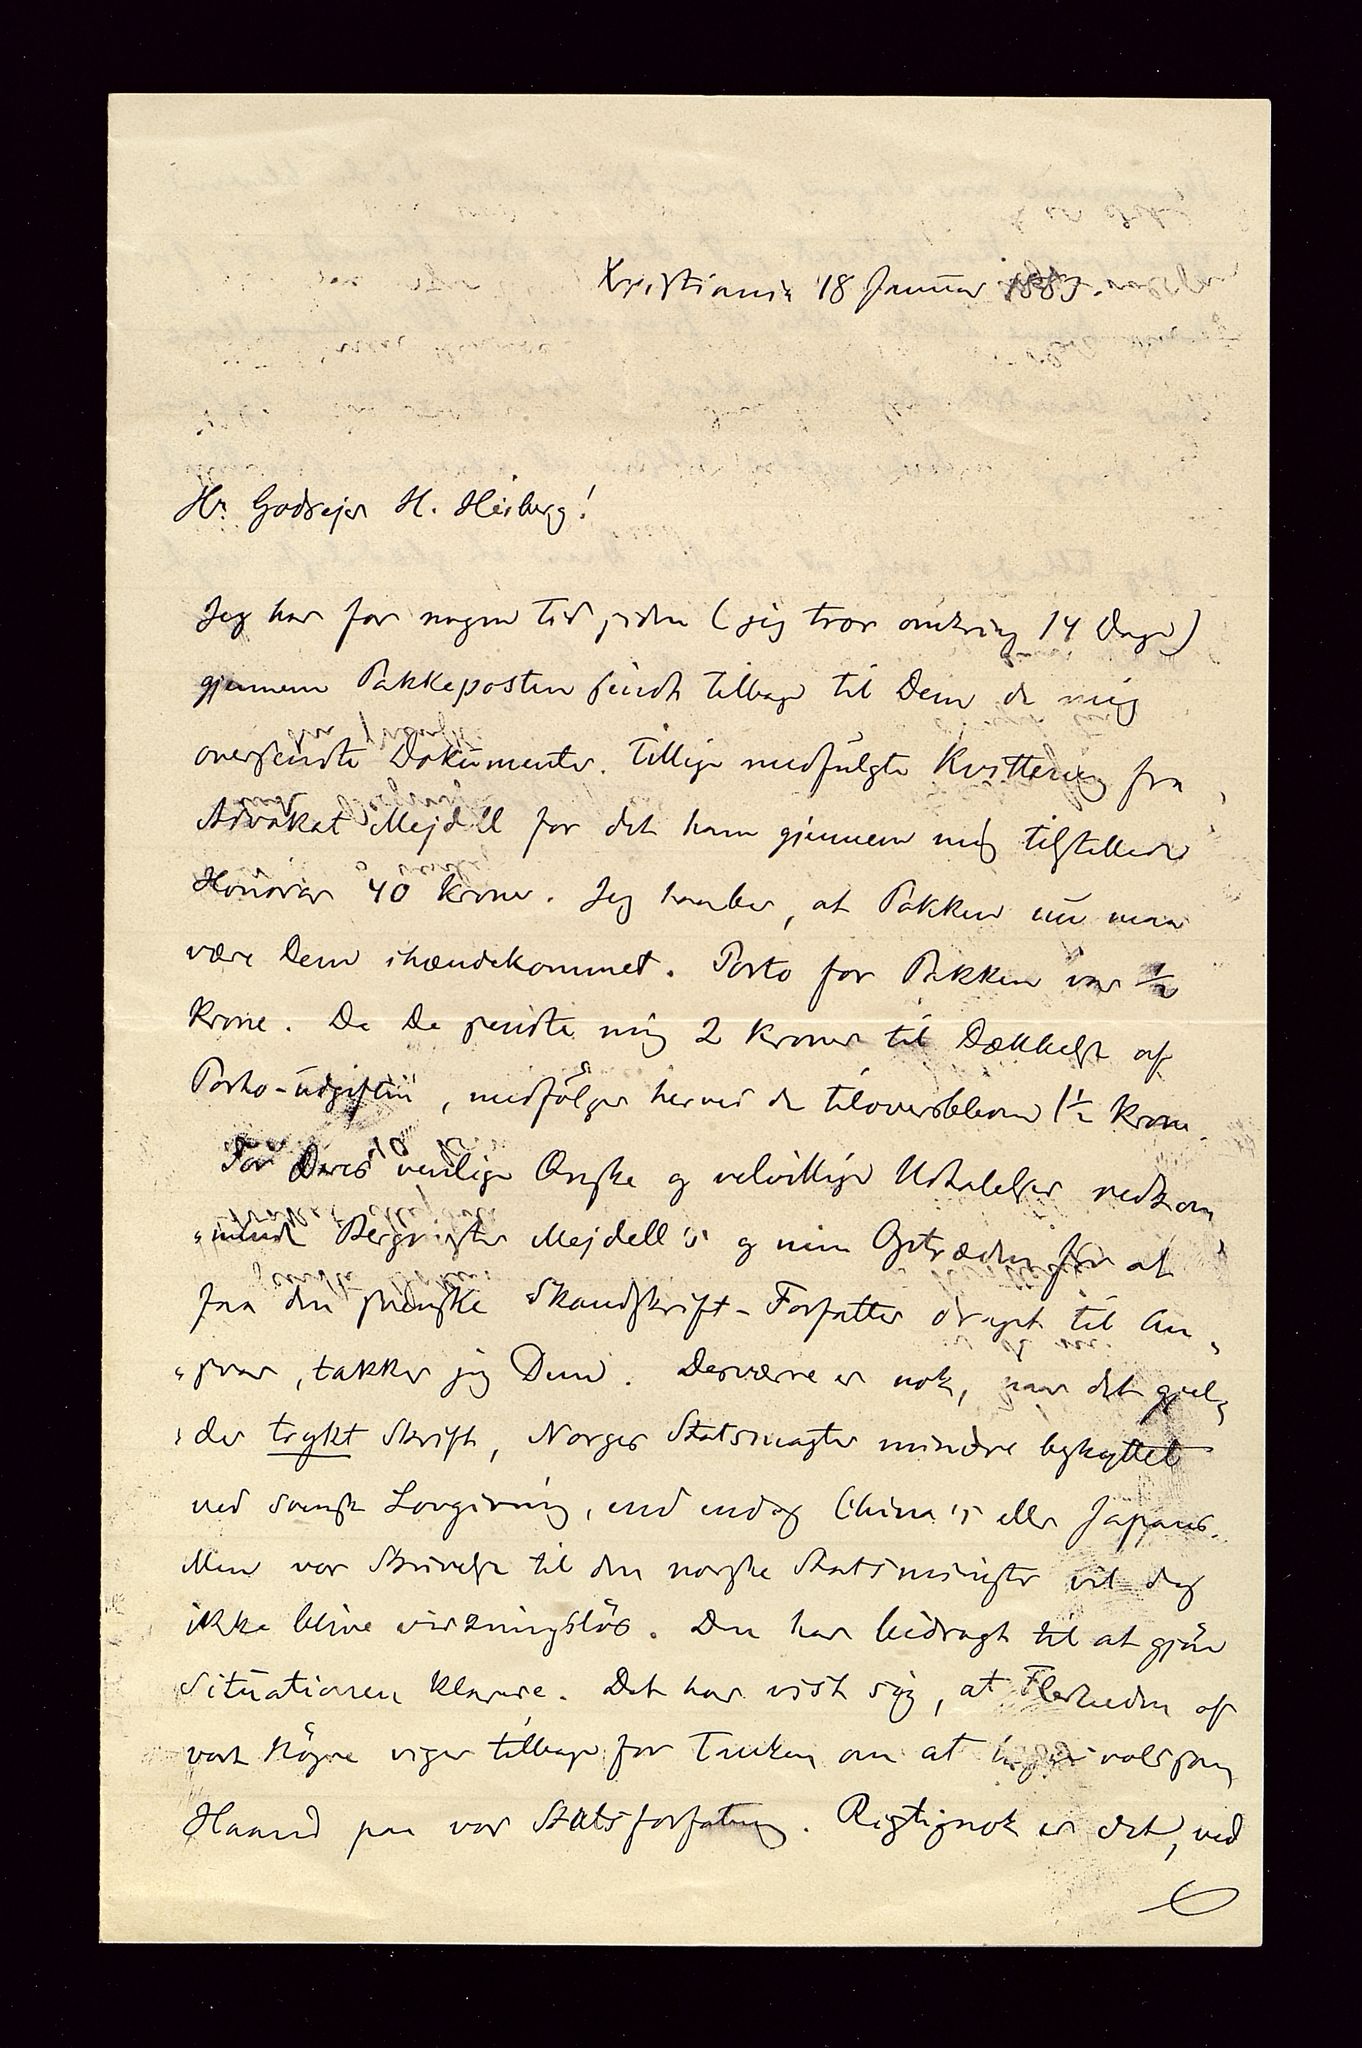 Kristiania 18 Januar 1883.
Hr. Godsejer H. Heiberg!
Jeg har for nogen Tid siden (jeg tror omkring 14 Dage)
gjennem Pakkeposten sendt tilbage til Dem de mig
oversendte Dokumenter. Tillige medfulgte Kvittering fra
Advokat Mejdell for det ham gjennem mig tilstillede
Honorar 40 Kroner. Jeg haaber, at Pakken nu maa
være Dem ihændekommet. Porto for Pakken var ½
Krone. Da De sendte mig 2 Kroner til Dækkelse af
Porto-Udgiften, medfölger herved de tiloversblevne 1½ Krone.
For Deres venlige Ønske og velvillige Udtalelser vedkom
„mende Bergmester Mejdell's og min Optræden for at
faa den svenske Skandskrift-Forfatter draget til An„
„svar, takker jeg Dem. Desværre er nok, naar det gjel„
„der trykt Skrift, Norges Statsmagter mindre beskyttet
ved svensk Lovgivning, end endog China's eller Japans.
Men vor Skrivelse til den norske Statsminister vil dog
ikke blive virkningslös. Den har bidraget til at gjöre
Situationen klarere. Det har vist sig, at Flerheden af
vort Högre viger tilbage for Tanken om at lægge voldsom
Haand paa vor Statsforfatning. Rigtignok er det, ved